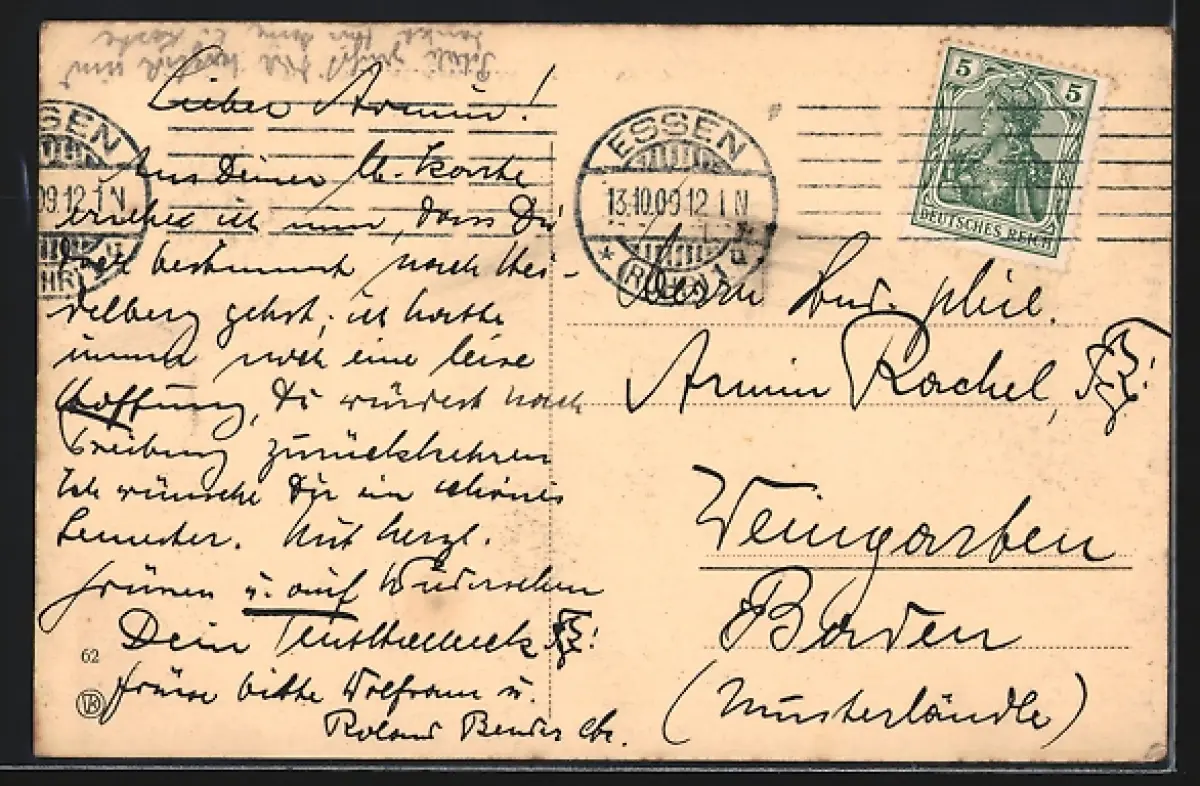 Lieber Armin!
Aus Deiner l. Karte
ersehe ich nun, dass Du
bestimmt nach Hei-
delberg gehst; ich hatte
immer noch eine leise
Hoffnung, Du würdest nach
Freiburg zurückkehren
Ich wünsche Dir ein schönes
Semester. Mit herzl.
Grüssen u. auf Wiedersehen
Dein
Grüsse bitte Wolfram u.
Roland Bender etc.
62
ESSEN
09.12-1N
(RUHR)
ESSEN
13.10.09.12-1N
* (RUHR) 1 u
5 5
DEUTSCHES REICH
Herrn stud. phil.
Armin Rachel,
Weingarten
Baden
(Musterländle)